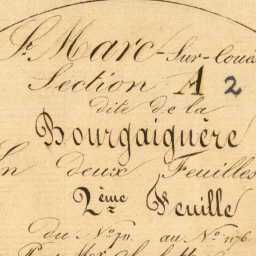 St. Marc-Sur-Coues
Section A 2
dite de la
Bourgaiguère
En deux Feuilles
2ème Feuille
du No. 711 au No. 1176